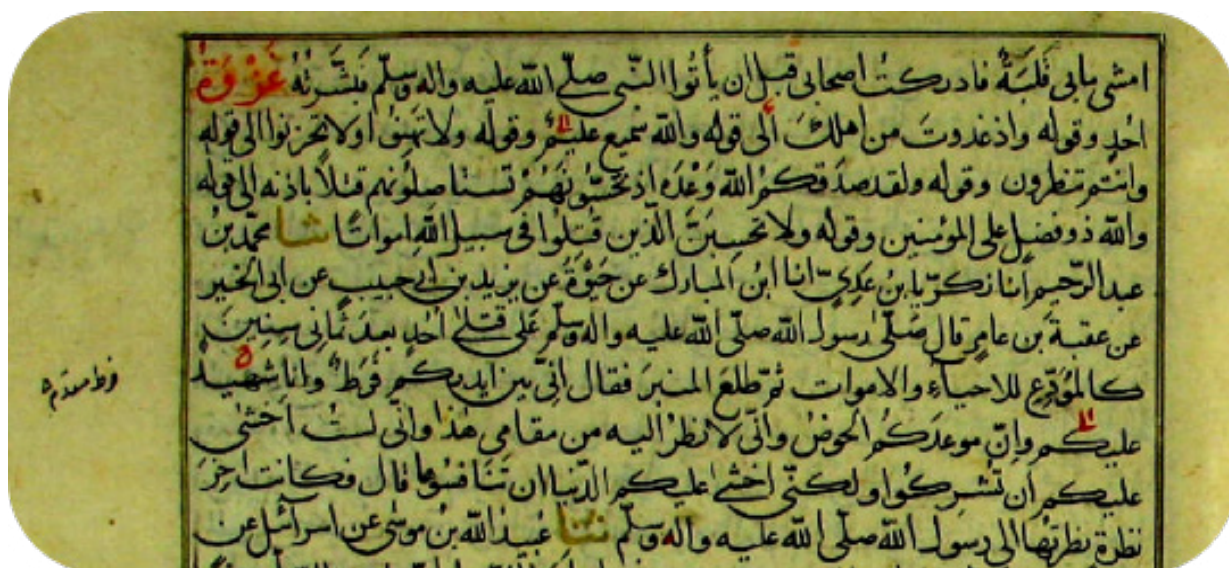 امشي ما بي قلبة فادركت اصحابي قبل ان ياتوا النبي صلى الله عليه واله وسلم فبشرته غزوة
احد وقوله واذ غدوت من اهلك الى قوله والله سميع عليم وقوله ولا تهنوا ولا تحزنوا الى قوله
وانتم تنظرون وقوله ولقد صدقكم الله وعده اذ تحسونهم تستاصلونهم قتلا باذنه الى قوله
والله ذو فضل على المؤمنين وقوله ولا تحسبن الذين قتلوا في سبيل الله امواتا ثنا محمد بن
عبد الرحيم انا زكريا بن عدي انا ابن المبارك عن حيوة عن يزيد بن ابي حبيب عن ابي الخير
عن عقبة بن عامر قال صلى رسول الله صلى الله عليه واله وسلم على قتلى احد بعد ثماني سنين
كالمودع للاحياء والاموات ثم طلع المنبر فقال اني بين ايديكم فرط وانا شهيد
عليكم وان موعدكم الحوض واني لانظر اليه من مقامي هذا واني لست اخشى
عليكم ان تشركوا ولكني اخشى عليكم الدنيا ان تنافسوها قال فكانت اخر
نظرة نظرتها الى رسول الله صلى الله عليه واله وسلم ثنا عبيد الله بن موسى عن اسرائيل عن